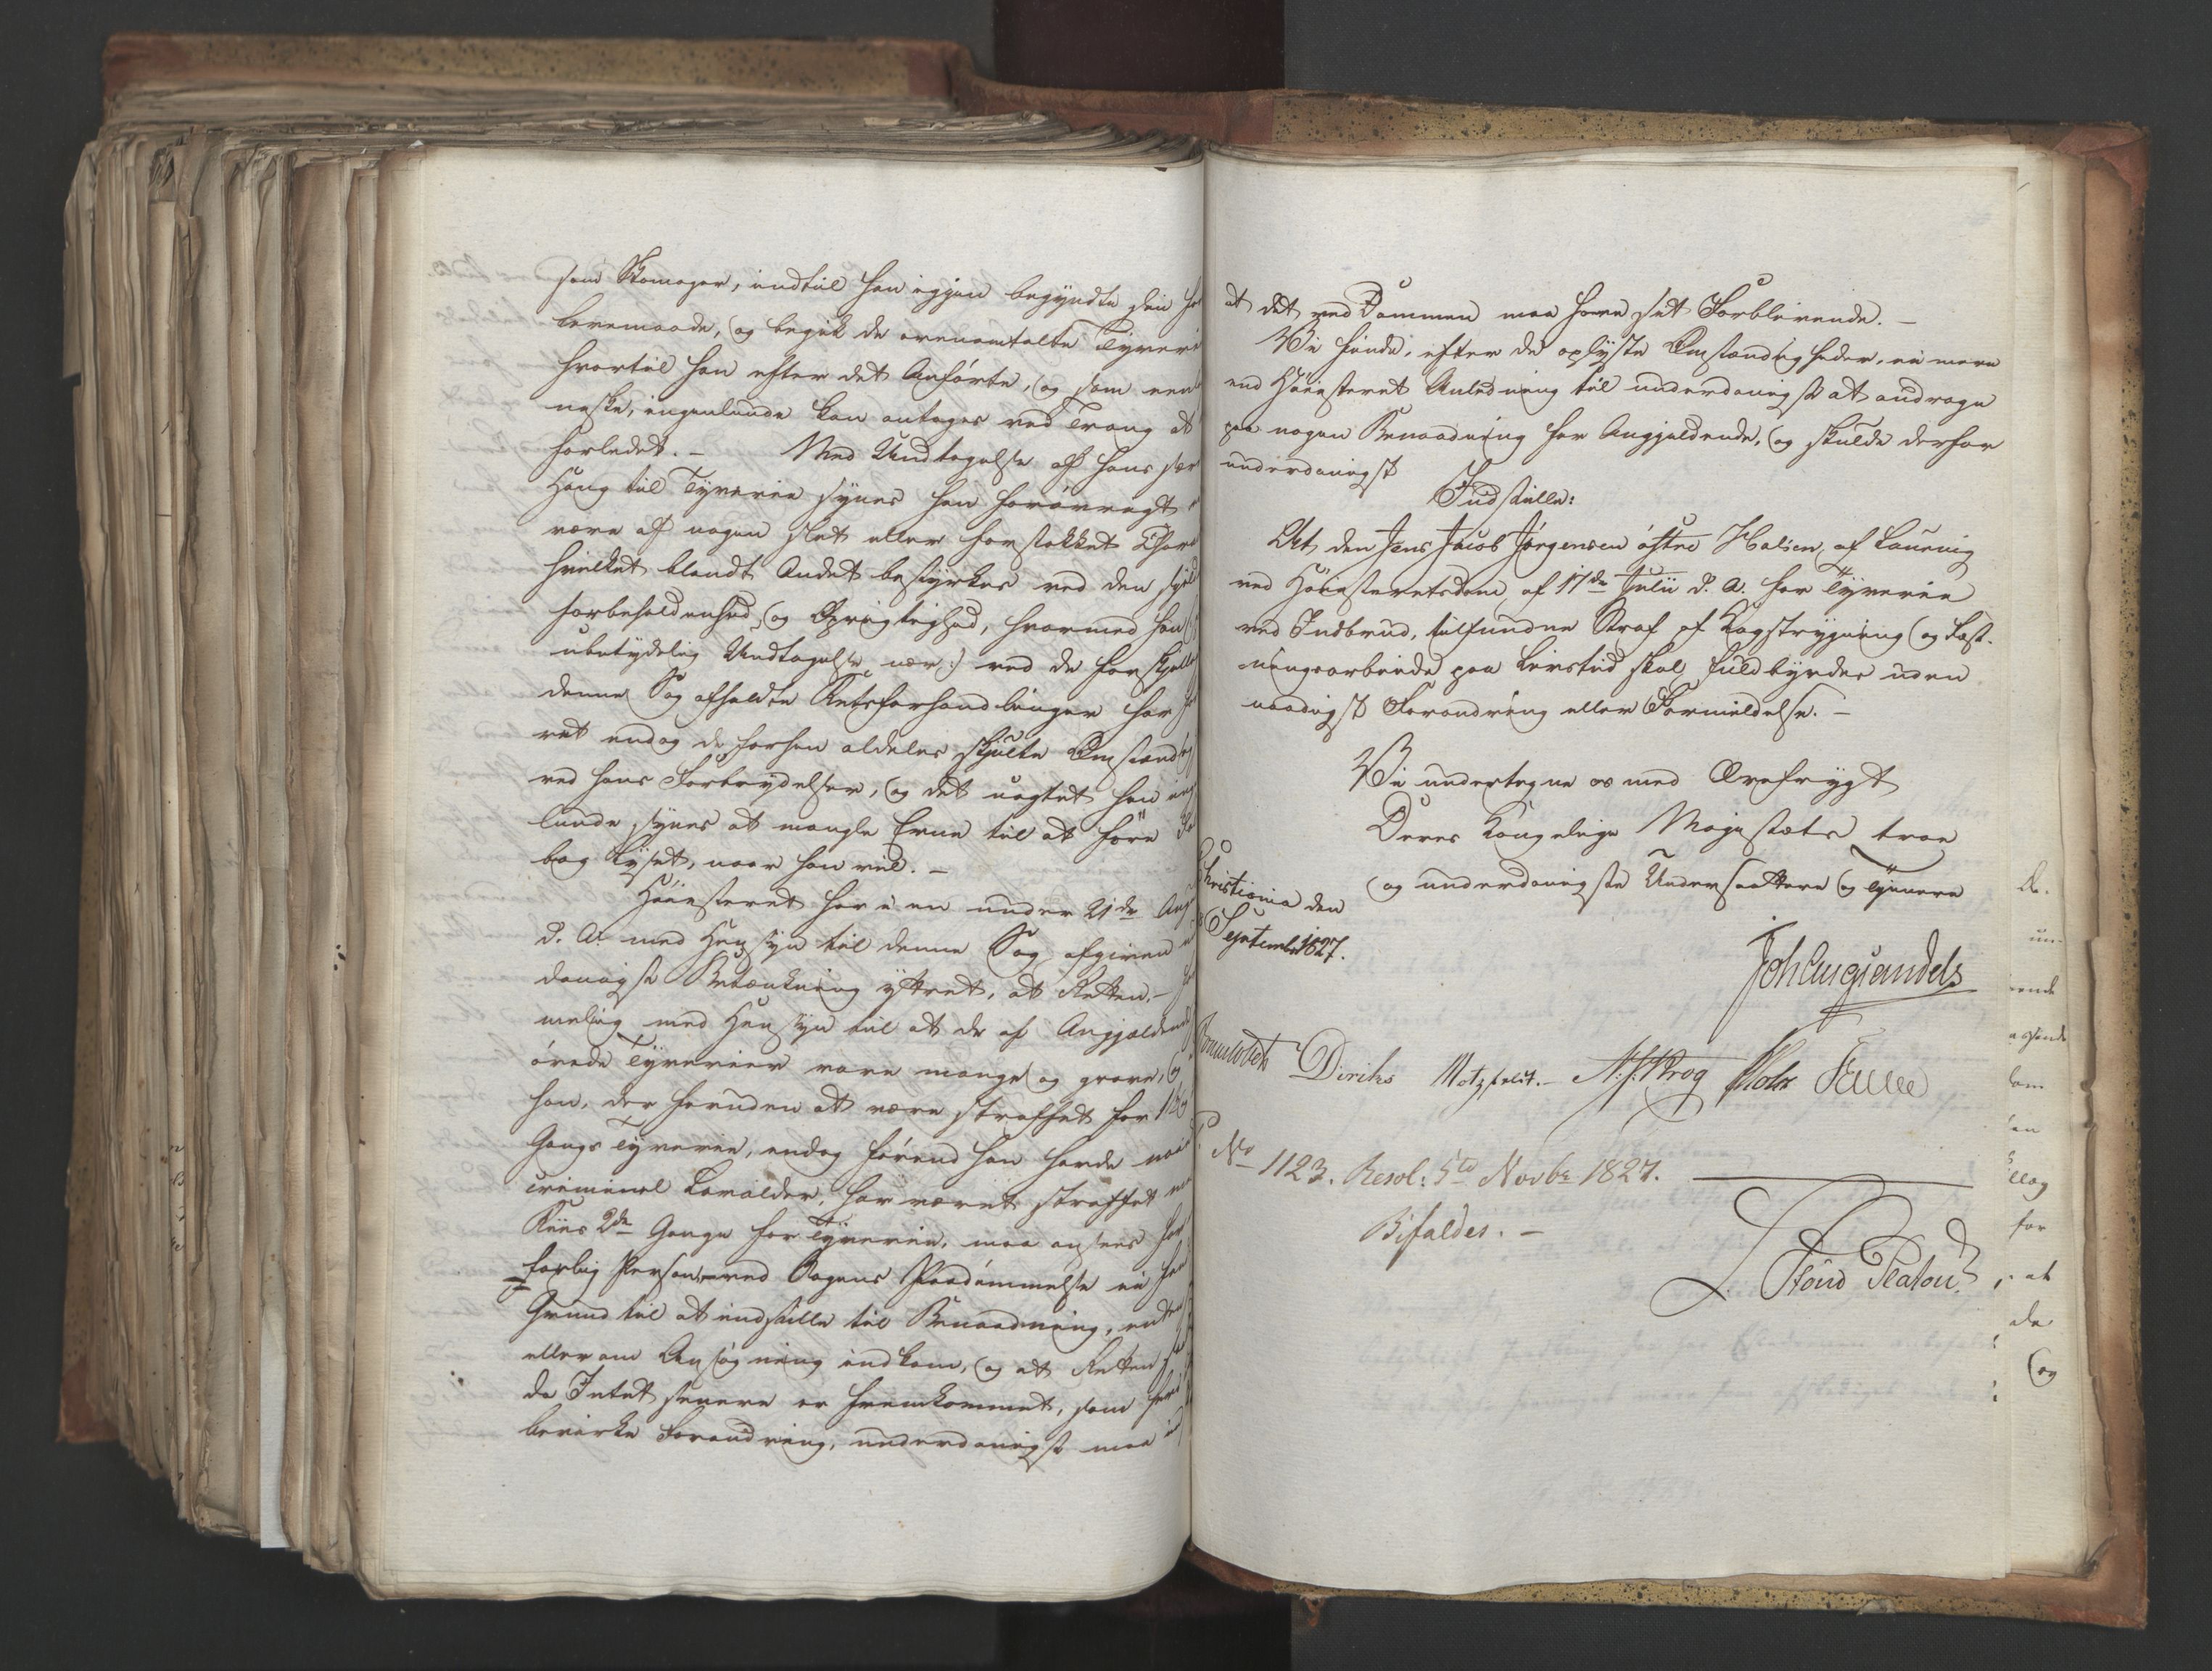 som Skomager, indtil han igjen begyndte sin
levemaade, og begik de ovenomtalte Tyverier
hvortil han efter det Anførte, og som een
neske, ingenlunde kan antages ved Trang at
forledet. – Med Undtagelse af hans
Hang til Tyverie synes han forøvrigt
være af nogen slet eller forstokket
hvilket blandt Andet bestyrkes ved den
forbeholdenhed og Oprigtighed, hvormed han
ubetydelig Undtagelse nær :) ved de forskjellige
denne Sag afholdte Retsforhandlinger har
ret endog de forhen aldeles skjulte Omstændig
ved hans Forbrydelser, og det uagtet han ingen
lunde synes at mangle Evne til at føre
bag Lyset, naar han vil. –
Høiesteret har i en under 21de Aug
d. A. med Hensyn til denne Sag afgiven
danigst Betænkning yttret, at Retten, –
melig med Hensyn til at de af Angjældende
øvede Tyverier vare mange og grove, og
han, der foruden at være straffet for 1ste
Gangs Tyverie, endog førend han havde naaet
criminel Lavalder, har været straffet med
Riis 2de Gange for Tyverie, maa ansees for
farlig Person, – ved Sagens Paadømmelse ei
Grund til at indstille til Benaadning, enten
eller om Ansøgning indkom, og at Retten
da Intet senere er fremkommet, som
bevirke Forandring, underdanigst maa
at det ved Dommen maa have sit Forblivende. –
Vi finde, efter de oplyste Omstændigheder, ei mere
end Høiesteret Anledning til underdanigst at andrage
paa nogen Benaadning for Angjældende, og skulde derfor
underdanigst
Indstille:
At den Jens Jacob Jørgensen øftre Halsen af Laurvig
ved Høiesteretsdom af 17de Julii d. A. for Tyverie
ved Indbrud, tilfundne Straf af Kagstrygning og Fæst-
ningsarbeide paa Livstid skal fuldbyrdes uden
naadigst Forandring eller Formildelse. –
Vi undertegne os med Ærefrygt
Deres Kongelige Majestæts troe
og underdanigste Undersaattere og Tjenere
Christiania den
September 1827.
Sommerfeldt Diriks Motzfeldt. – Krog Holst Fasting
No 1123. Resol: 5te Novbr 1827.
Bifaldes. –
Stoud Platou